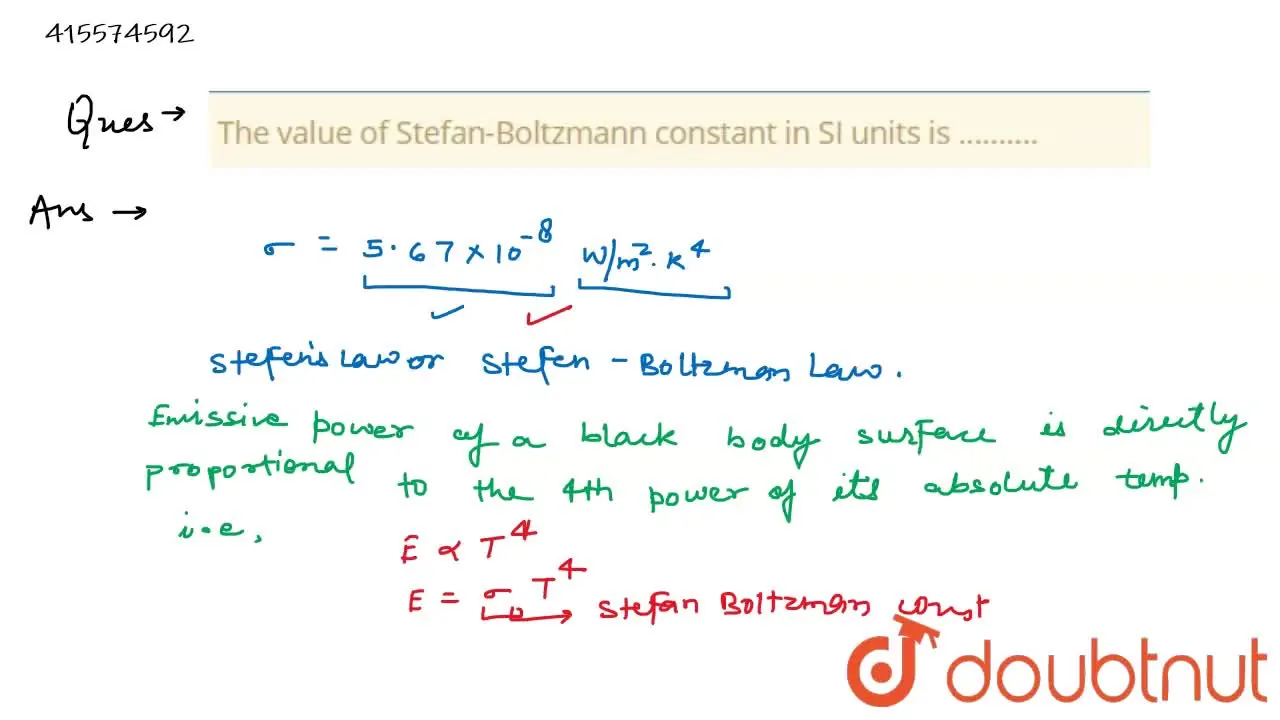 415574592
Ques → The value of Stefan-Boltzmann constant in SI units is ..........
Ans →
σ = 5.67 × 10⁻⁸ W/m².K⁴
Stefen's Law or Stefen - Boltzman Law.
Emissive power of a black body surface is directly
proportional to the 4th power of its absolute temp.
i.e,
E ∝ T⁴
E = σ T⁴
→ Stefan Boltzman const
doubtnut